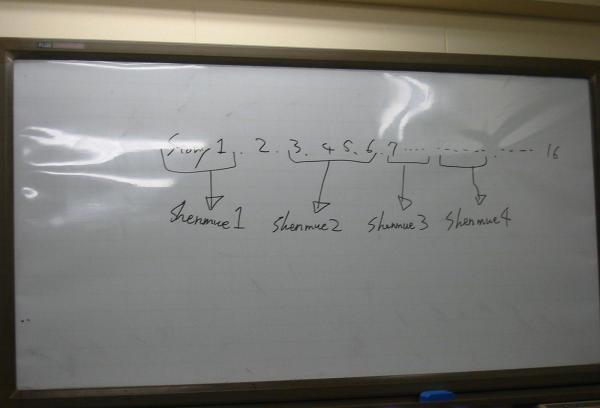 PLUS
Story 1. 2. 3. 4 5. 6. 7..... ------.----- 16
Shenmue1 Shenmue2 Shenmue3 Shenmue4